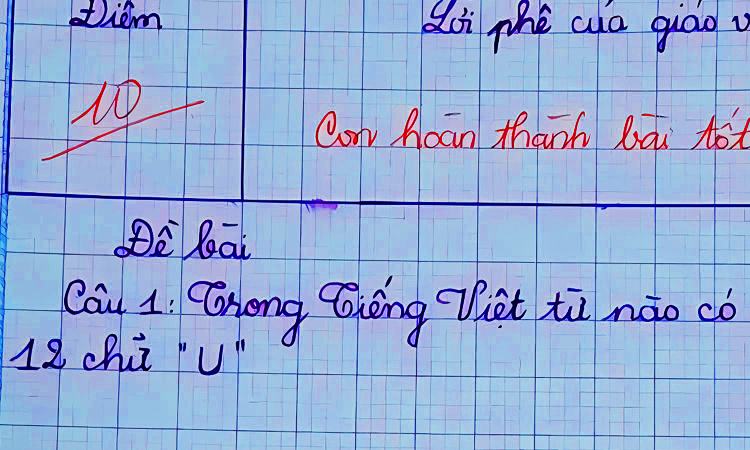 Điểm
Lời phê của giáo v
10
Con hoàn thành bài tốt
Đề bài
Câu 1: Trong Tiếng Việt từ nào có
12 chữ "U"